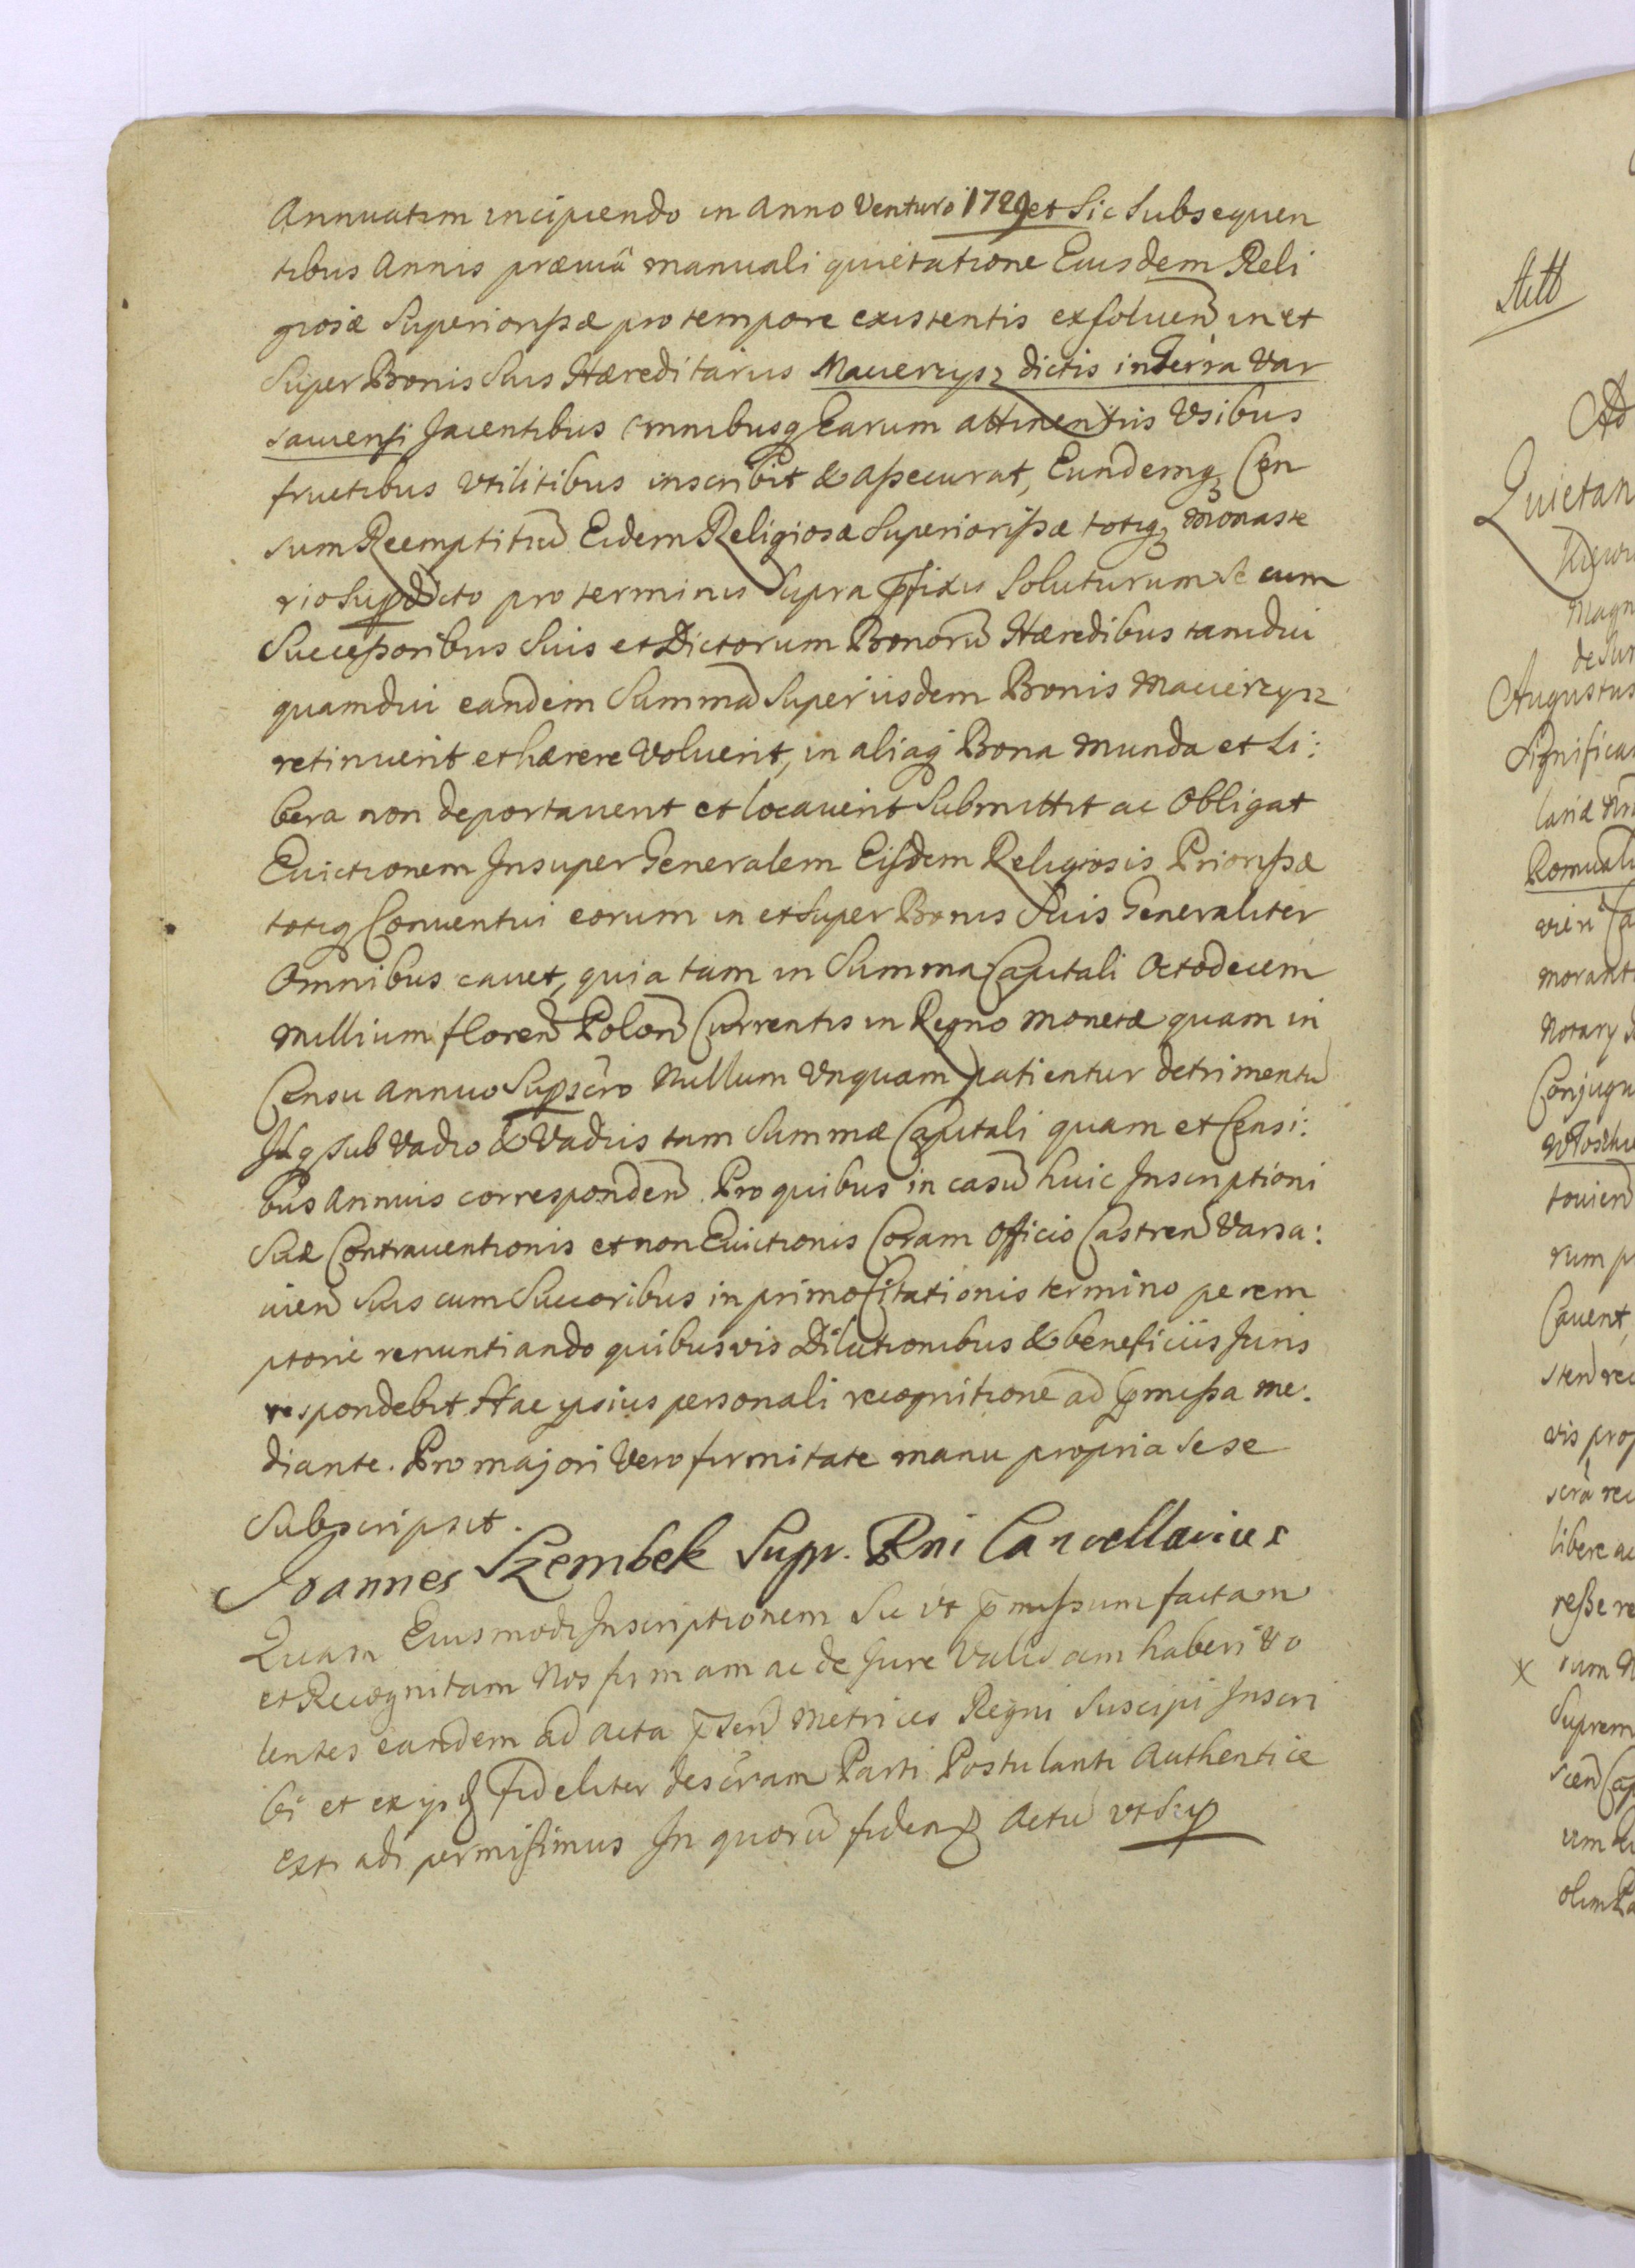 Annuatim incipiendo in Anno Venturo 1729 et Sic Subsequen
tibus Annis præuiâ manuali quietatione Eiusdem Reli
giosæ Superiorissæ pro tempore existentis exsoluen̄ in et
Super Bonis Suis Hæreditariis Maciercysz dictis in Terra Var
sauiensi Jacentibus omnibusq Earum attinentiis Vsibus
fructibus Vtilitibus inscribit & assecurat, Eundemq Cen
sum Reemptitiū Eidem Religiosæ Superiorissæ totiq Monaste
rio supdicto pro terminis Supra pfixis Soluturum Se cum
Successoribus Suis et Dictorum Bonorū Hæredibus tamdiu
quamdiu eandem Summā Super iisdem Bonis Maciercysz
retinuerit et hærere Voluerit, in aliaq Bona munda et Li:
bera non deportauerit et locauerit Submittit ac Obligat
Euictionem Insuper Generalem Eisdem Religiosis Priorissæ
totiq Conuentui eorum in et Super Bonis Suis Generaliter
Omnibus cauet, quia tam in Summa Capitali Octodecem
Millium floren̄ Polon̄ Currentis in Regno Monetæ quam in
Censu annuo Supscro Nullum Vnquam patientur detrimentū
Idq sub Vadio & Vadiis tam Summæ Capitali quam et Censi:
bus Annuis corresponden̄. Pro quibus in casū huic Inscriptioni
Suæ Contrauentionis et non Euictionis Coram Officio Castren̄ Varsa:
uien̄ Suis cum Succoribus in primo Citationis termino perem
ptorie renuntiando quibusvis Dilationibus & beneficiis Juris
respondebit. Hac ipsius personali recognitione ad pmissa me:
diante. Pro majori Vero firmitate manu propria Sese
Subscripsit.
Joannes Szembek Supr. Rni Cancellarius
Quam Eiusmodi Inscriptionem Sic vt pmissum factam
et Recognitam Nos firmam ac de Jure Validam haberi Vo
lentes eandem ad Acta psen̄ Metrices Regni Suscipi Inscri
bi et ex ijsd Fideliter descram Parti Postulanti Authentice
extradi permisimus In quorū fidem Actū vt Sup
Stt
Ad
Quietan
Magn
de Sur
Augustus
Significa
Romuald
morant
Notary
Conjugu
rum p
Cauent,
vis prop
libere ac
Suprem
olim Pa